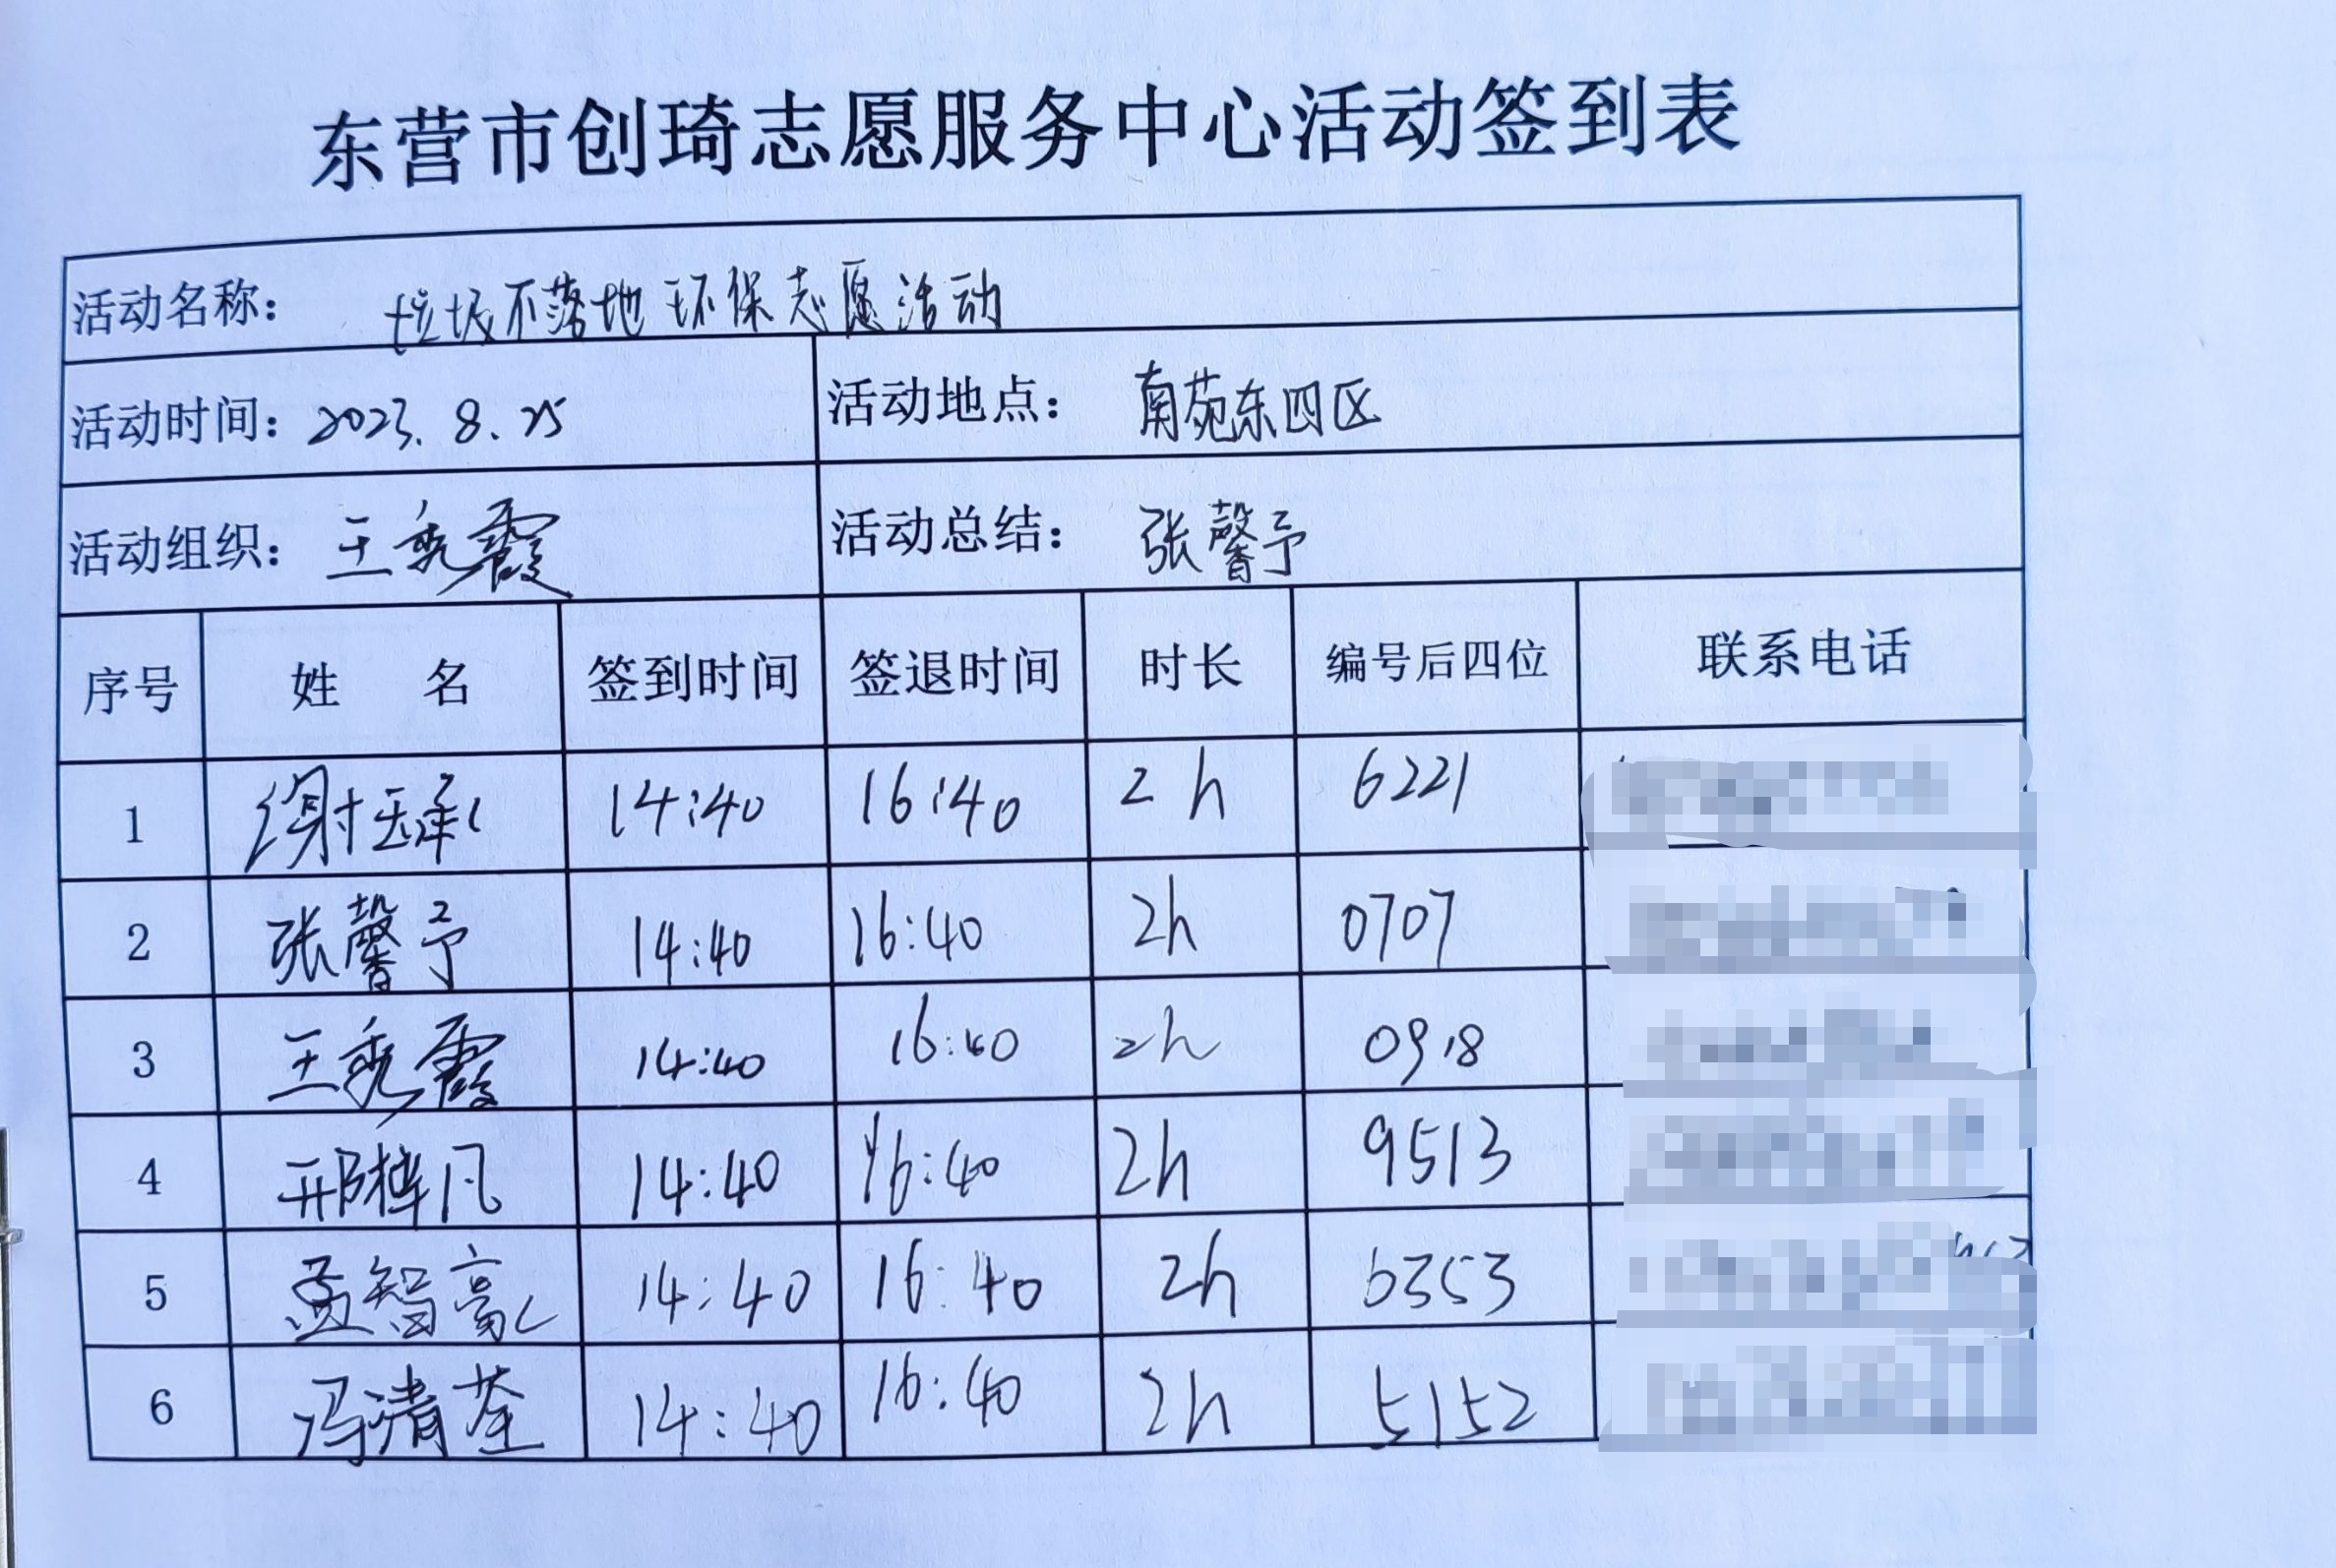 东营市创琦志愿服务中心活动签到表
活动名称： 垃圾不落地环保志愿活动
活动时间：2023.8.25 活动地点： 南苑东四区
活动组织： 王秀霞 活动总结： 张馨予
序号 姓 名 签到时间 签退时间 时长 编号后四位 联系电话
1 谢 承 14:40 16:40 2h 6221
2 张馨予 14:40 16:40 2h 0707
3 王秀霞 14:40 16:40 2h 0918
4 邢梓凡 14:40 16:40 2h 9513
5 孟智豪 14:40 16:40 2h 6353
6 冯清荃 14:40 16:40 2h 5152